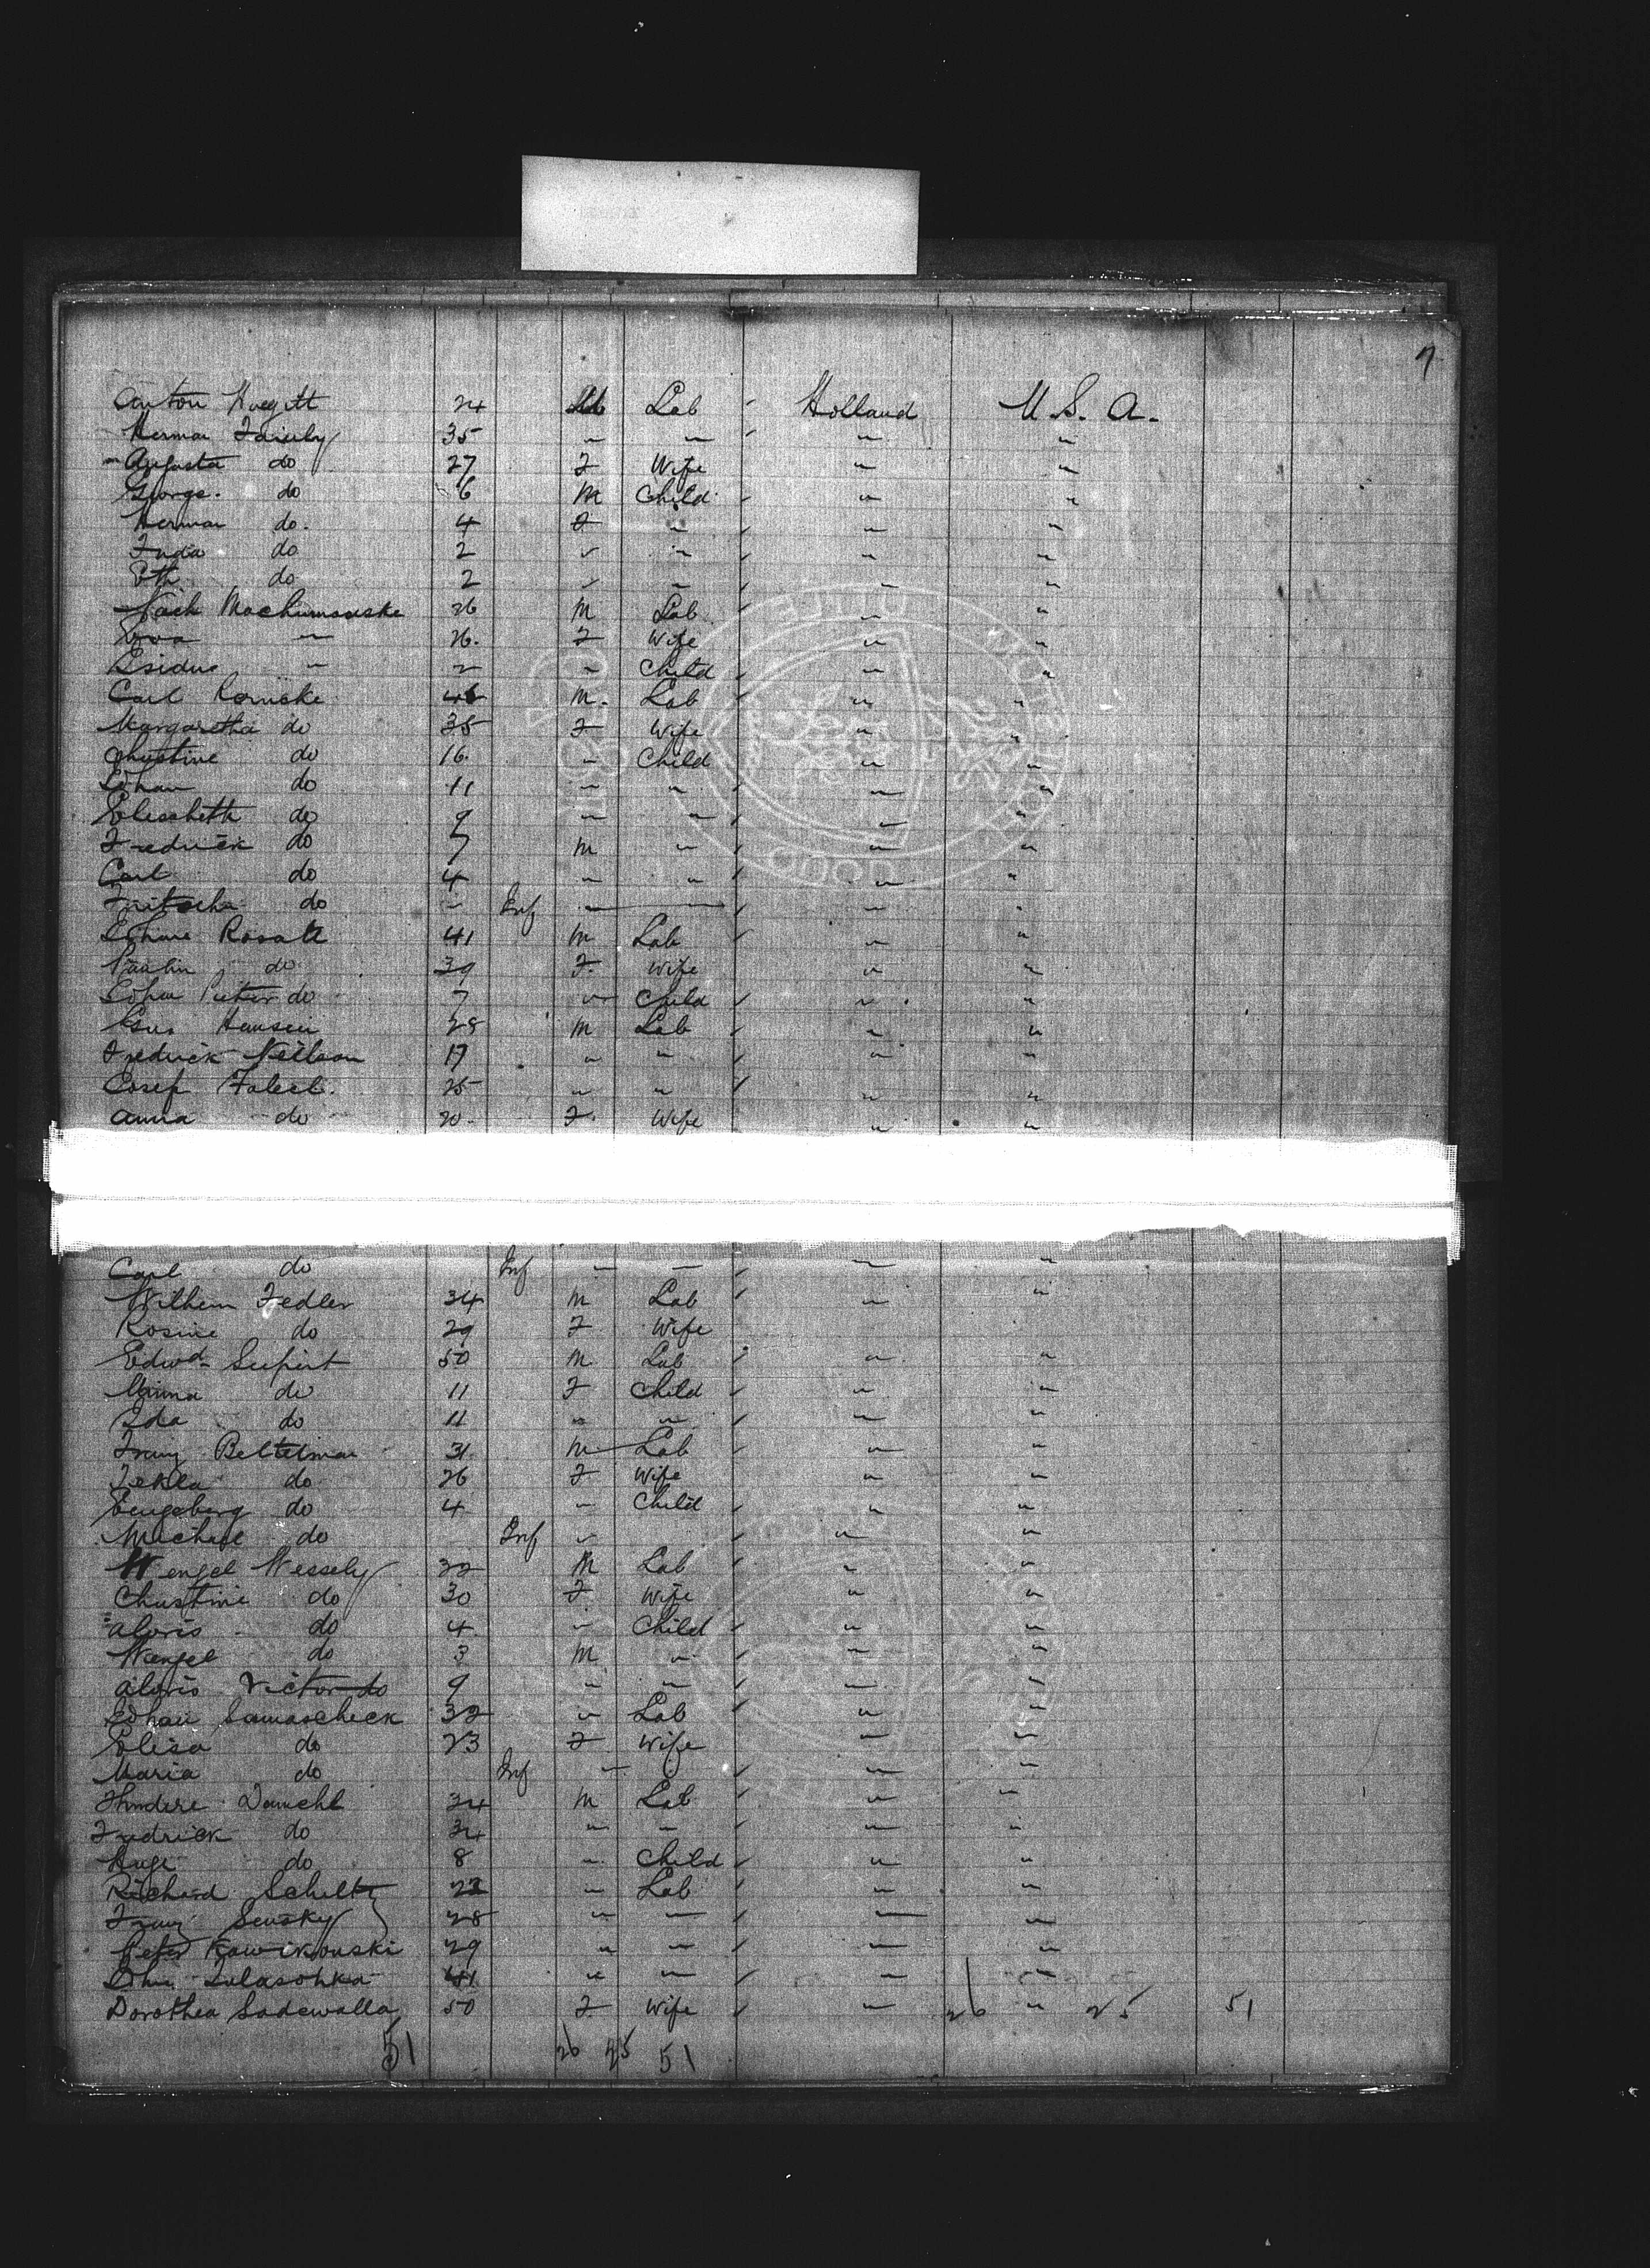 7
Anton 24 M Lab Holland U.S.A.
Herman 35 " " " "
Augusta do 27 F Wife " "
George do 6 M Child " "
Herman do 4 F " " "
do 2 " " " "
Eth do 2 " " " "
26 M Lab " "
Eva " 26 F Wife " "
" 2 " Child " "
Carl 46 M Lab " "
Margaretha do 35 F Wife " "
Christine do 16 " Child " "
Johan do 11 " " " "
Elisabeth do 9 " " " "
Fredrick do 7 M " " "
Carl do 4 " " " "
do " Inf " " " "
41 M Lab " "
Paulin do 39 F Wife " "
Johan Peter do 7 " Child " "
Hansen 28 M Lab " "
Fredrick Neilson 17 " " " "
Cosef 25 " " " "
Anna do 20 F Wife " "
Carl do Inf " " " "
Wilhem Fedler 34 M Lab " "
Rosine do 29 F Wife
Edwd Seifert 50 M Lab " "
Minna do 11 F Child " "
Ida do 11 " " " "
Franz Beltelman 31 M Lab " "
Tekla do 26 F Wife " "
Eengeberg do 4 " Child " "
Michael do Inf " " "
Wenzel Wessely 32 M Lab " "
Christine do 30 F Wife " "
Alovis do 4 " Child " "
Wenzel do 3 M " " "
Alovis Victor do 9 " " " "
Johan Samascheck 32 " Lab " "
Elisa do 23 F Wife " "
Maria do Inf " " "
34 M Lab " "
Fredrick do 34 " " " "
Huge do 8 " Child " "
Richard Schultz 22 " Lab " "
Franz Sensky 28 " " " "
Peter Kawikouski 29 " " " "
41 " " " "
Dorothea Sadewalla 50 F Wife " 26 " 25 51
51 26 25 51